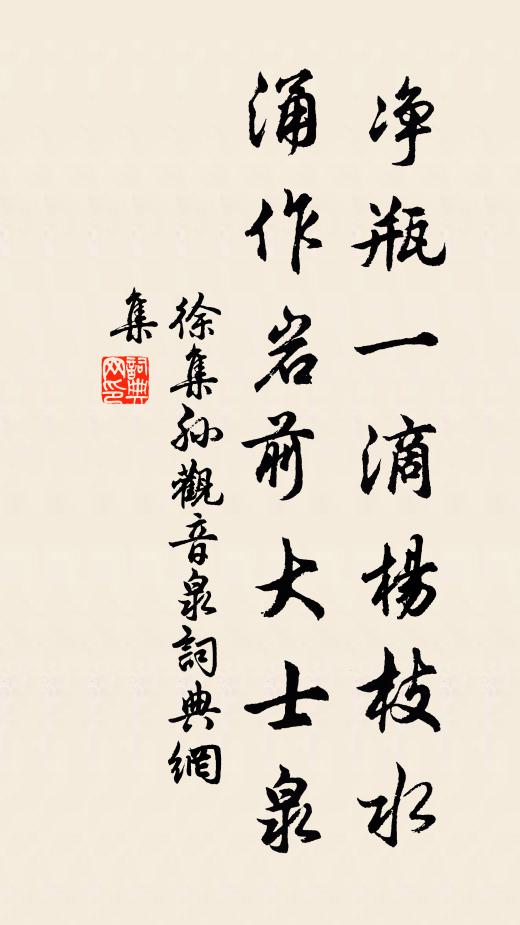 净瓶一滴楊枝水
涌作岩前大士泉
徐集孙觀音泉詞典網
集
詞典
网印